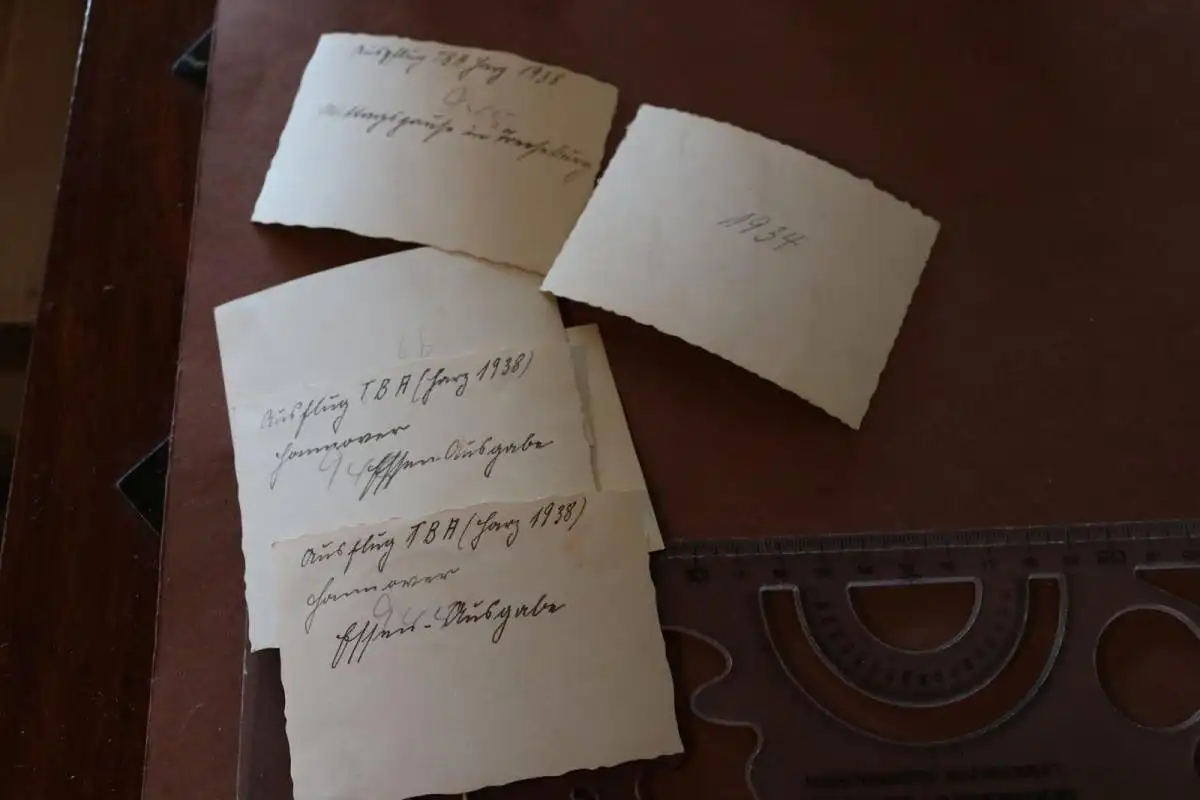 Ausflug TBA Harz 1938
Mittagspause in
1934
Ausflug TBA (Harz 1938)
Hannover
Essen Ausgabe
Ausflug TBA (Harz 1938)
Hannover
Essen-Ausgabe